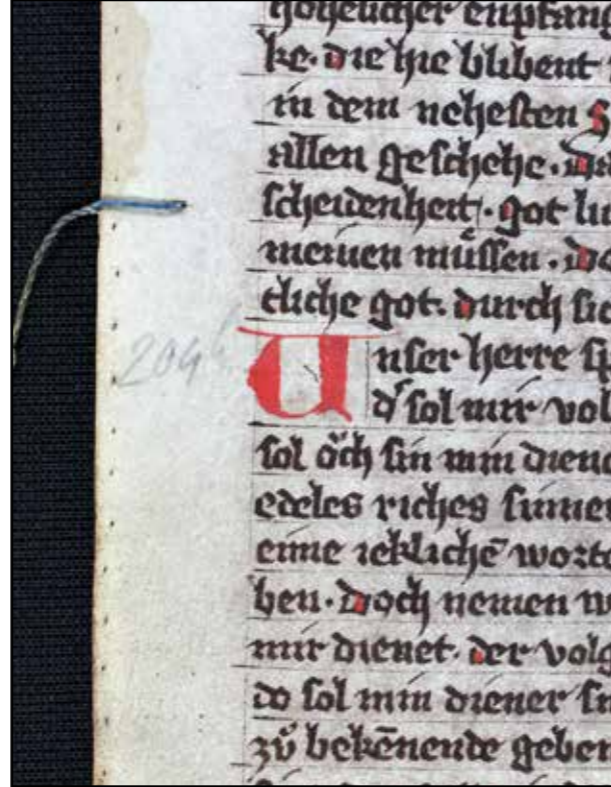 ke. die hie blibent
in dem nehesten
allen geschehe.
scheidenheit. got
meinen müssen.
etliche got. durch
204
Unser herre sp
d' sol mir vol
sol öch sin min diene
edeles riches
eime iekliche wort
ben. Doch nemen
mir dienet. der volg
do sol min diener
zů bekēnende geben